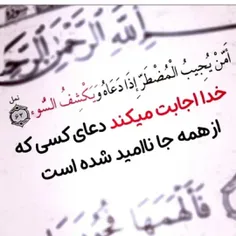 بِسْمِ اللَّهِ الرَّحْمَنِ الرَّحِيمِ
أَمَّنْ يُجِيبُ الْمُضْطَرَّ إِذَا دَعَاهُ وَيَكْشِفُ السُّوءَ
نمل
۶۲
خدا اجابت میکند دعای کسی که
از همه جا ناامید شده است
فَأَلْهَمَهَا فُجُورَهَا